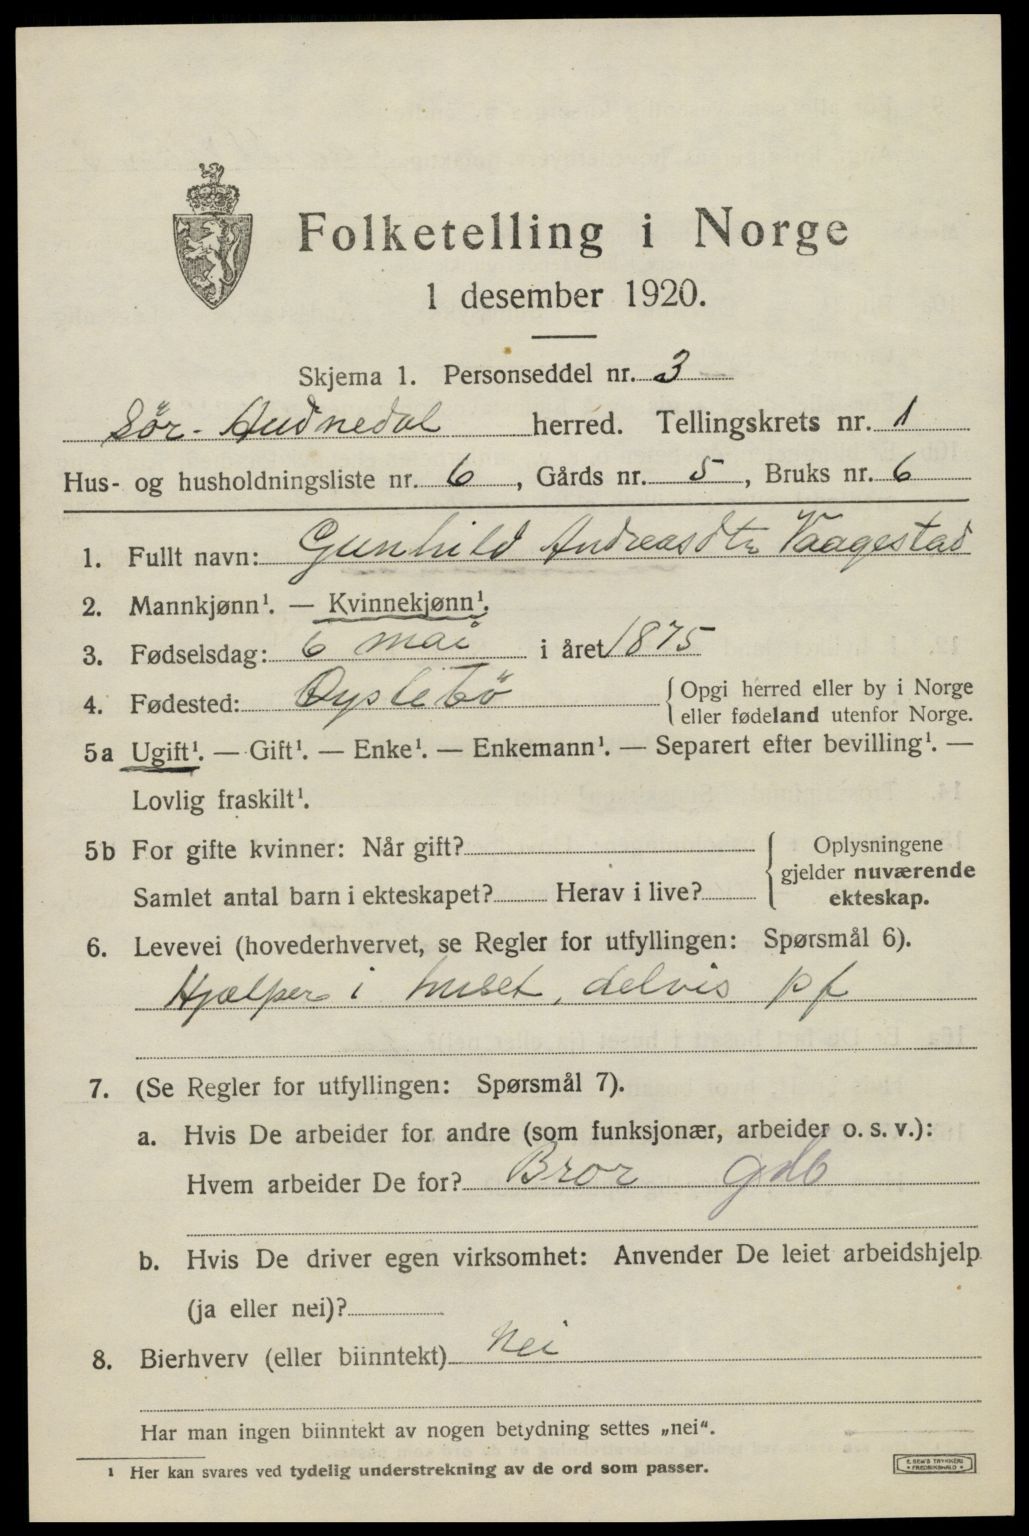 Folketelling i Norge
1 desember 1920.
Skjema 1. Personseddel nr. 3
Sör-Audnedal herred. Tellingskrets nr. 1
Hus- og husholdningsliste nr. 6, Gårds nr. 5, Bruks nr. 6
1. Fullt navn: Gunhild Andreasdtr Vaagestad
2. Mannkjønn¹. — Kvinnekjønn¹.
3. Fødselsdag: 6 mai i året 1875
4. Fødested: Öyslebö {Opgi herred eller by i Norge
eller fødeland utenfor Norge.
5a Ugift¹. — Gift¹. — Enke¹. — Enkemann¹. — Separert efter bevilling¹. —
Lovlig fraskilt¹.
5b For gifte kvinner: Når gift?
Samlet antal barn i ekteskapet? Herav i live?
{Oplysningene
gjelder nuværende
ekteskap.
6. Levevei (hovederhvervet, se Regler for utfyllingen: Spørsmål 6).
Hjælper i huset, delvis pf
7. (Se Regler for utfyllingen: Spørsmål 7).
a. Hvis De arbeider for andre (som funksjonær, arbeider o. s. v.):
Hvem arbeider De for? Bror gdb
b. Hvis De driver egen virksomhet: Anvender De leiet arbeidshjelp
(ja eller nei)?
8. Bierhverv (eller biinntekt) Nei
Har man ingen biinntekt av nogen betydning settes „nei".
¹ Her kan svares ved tydelig understrekning av de ord som passer.
E. SEM'S TRYKKERI
FREDRIKSHALD